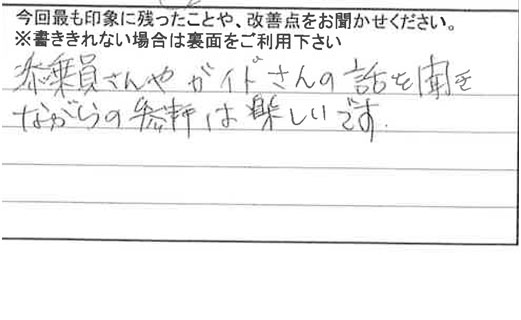 今回最も印象に残ったことや、改善点をお聞かせください。
※書ききれない場合は裏面をご利用下さい
添乗員さんやガイドさんの話を聞き
ながらの参拝は楽しいです.